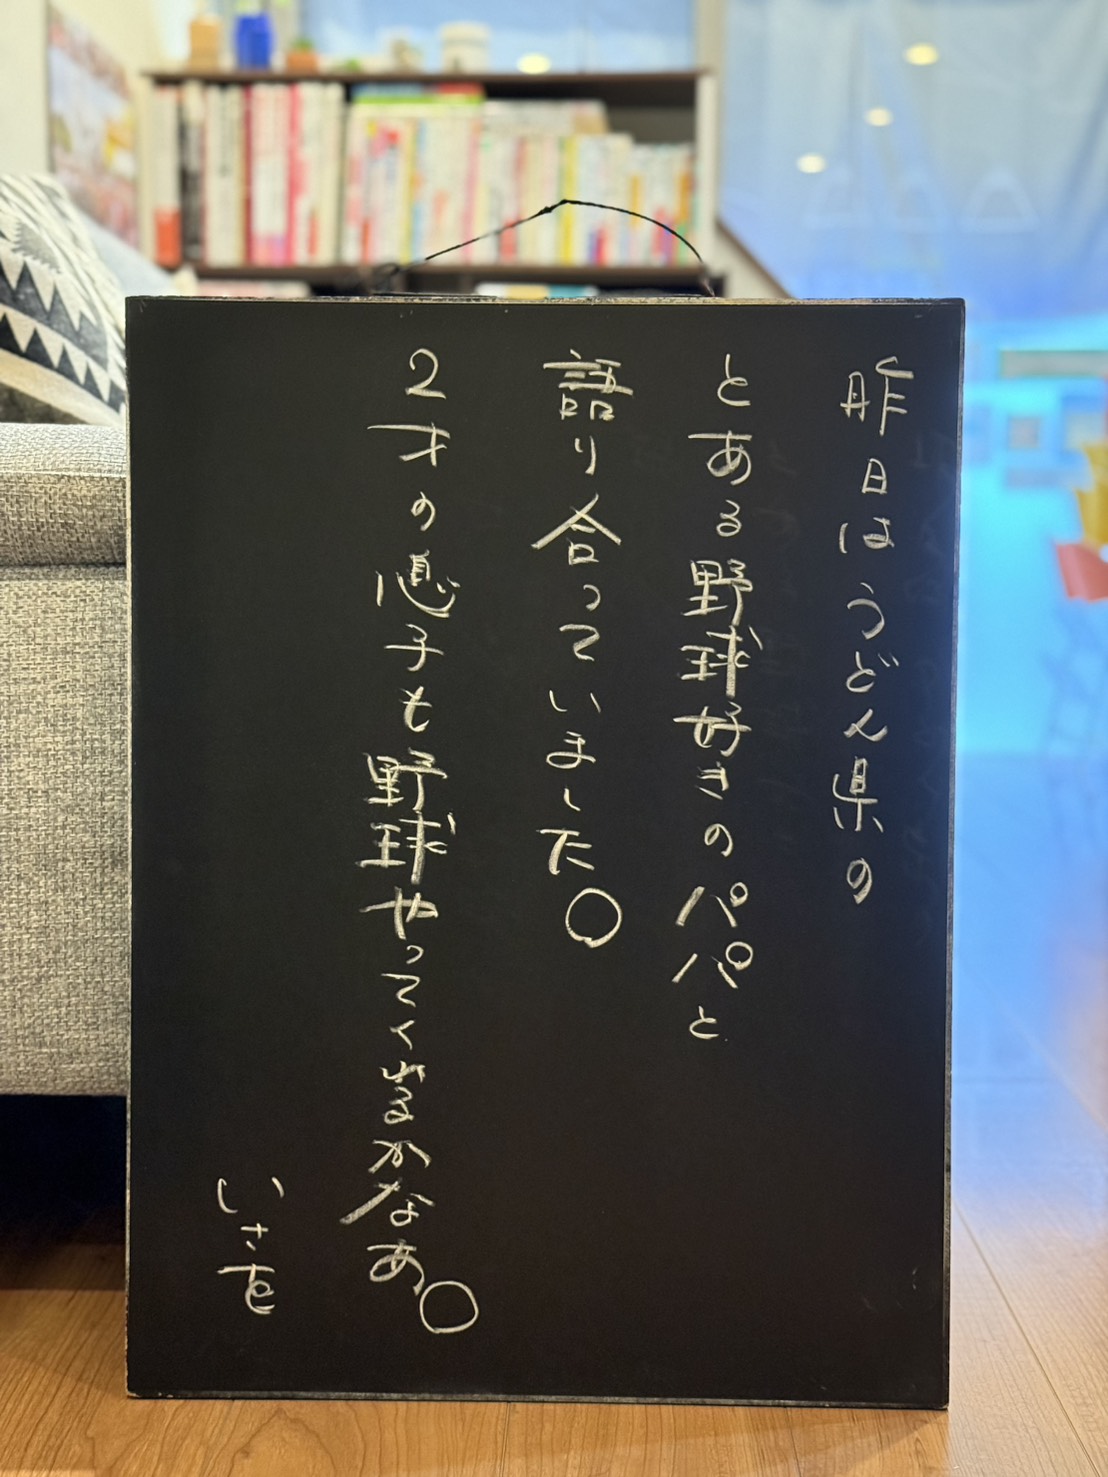 昨日はうどん県の
とある野球好きのパパと
語り合っていました。
2才の息子も野球やってくるかなあ。
いさを